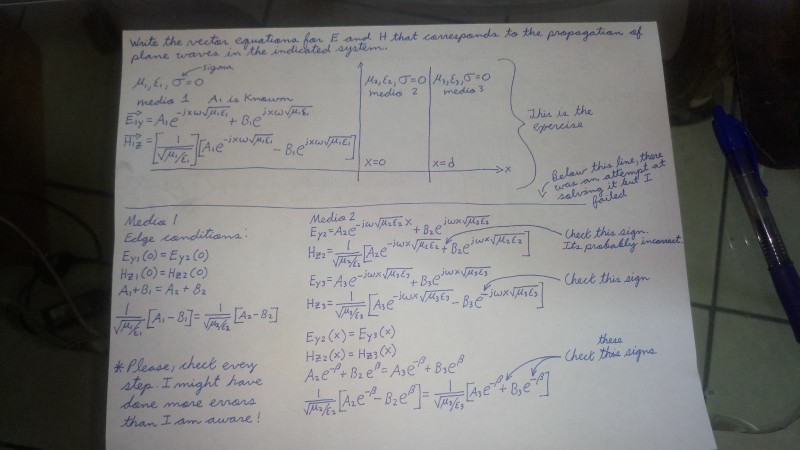 Write the vector equations for E and H that corresponds to the propagation of
plane waves in the indicated system.
sigma
μ₁, ε₁, σ=0
media 1 A₁ is Known
E₁y = A₁e^(-jxω√μ₁ε₁) + B₁e^(jxω√μ₁ε₁)
H₁z = [1/√(μ₁/ε₁)] [A₁e^(-jxω√μ₁ε₁) - B₁e^(jxω√μ₁ε₁)]
μ₂, ε₂, σ=0
media 2
μ₃, ε₃, σ=0
media 3
x=0
x=d
x
This is the
exercise
Below this line, there
was an attempt at
solving it but I
failed
Media 1
Edge conditions:
Ey₁(0) = Ey₂(0)
Hz₁(0) = Hz₂(0)
A₁+B₁ = A₂+B₂
1/√(μ₁/ε₁) [A₁-B₁] = 1/√(μ₂/ε₂) [A₂-B₂]
* Please, check every
step. I might have
done more errors
than I am aware!
Media 2
Ey₂ = A₂e^(-jω√μ₂ε₂ x) + B₂e^(jωx√μ₂ε₂)
Hz₂ = 1/√(μ₂/ε₂) [A₂e^(-jωx√μ₂ε₂) + B₂e^(jωx√μ₂ε₂)]
Check this sign.
Its probably incorrect.
Ey₃ = A₃e^(-jωx√μ₃ε₃) + B₃e^(jωx√μ₃ε₃)
Hz₃ = 1/√(μ₃/ε₃) [A₃e^(-jωx√μ₃ε₃) - B₃e^(-jωx√μ₃ε₃)]
Check this sign
Ey₂(x) = Ey₃(x)
Hz₂(x) = Hz₃(x)
A₂e^(-β) + B₂e^(β) = A₃e^(-β) + B₃e^(β)
1/√(μ₂/ε₂) [A₂e^(-β) - B₂e^(β)] = 1/√(μ₃/ε₃) [A₃e^(-β) + B₃e^(-β)]
these
Check this signs